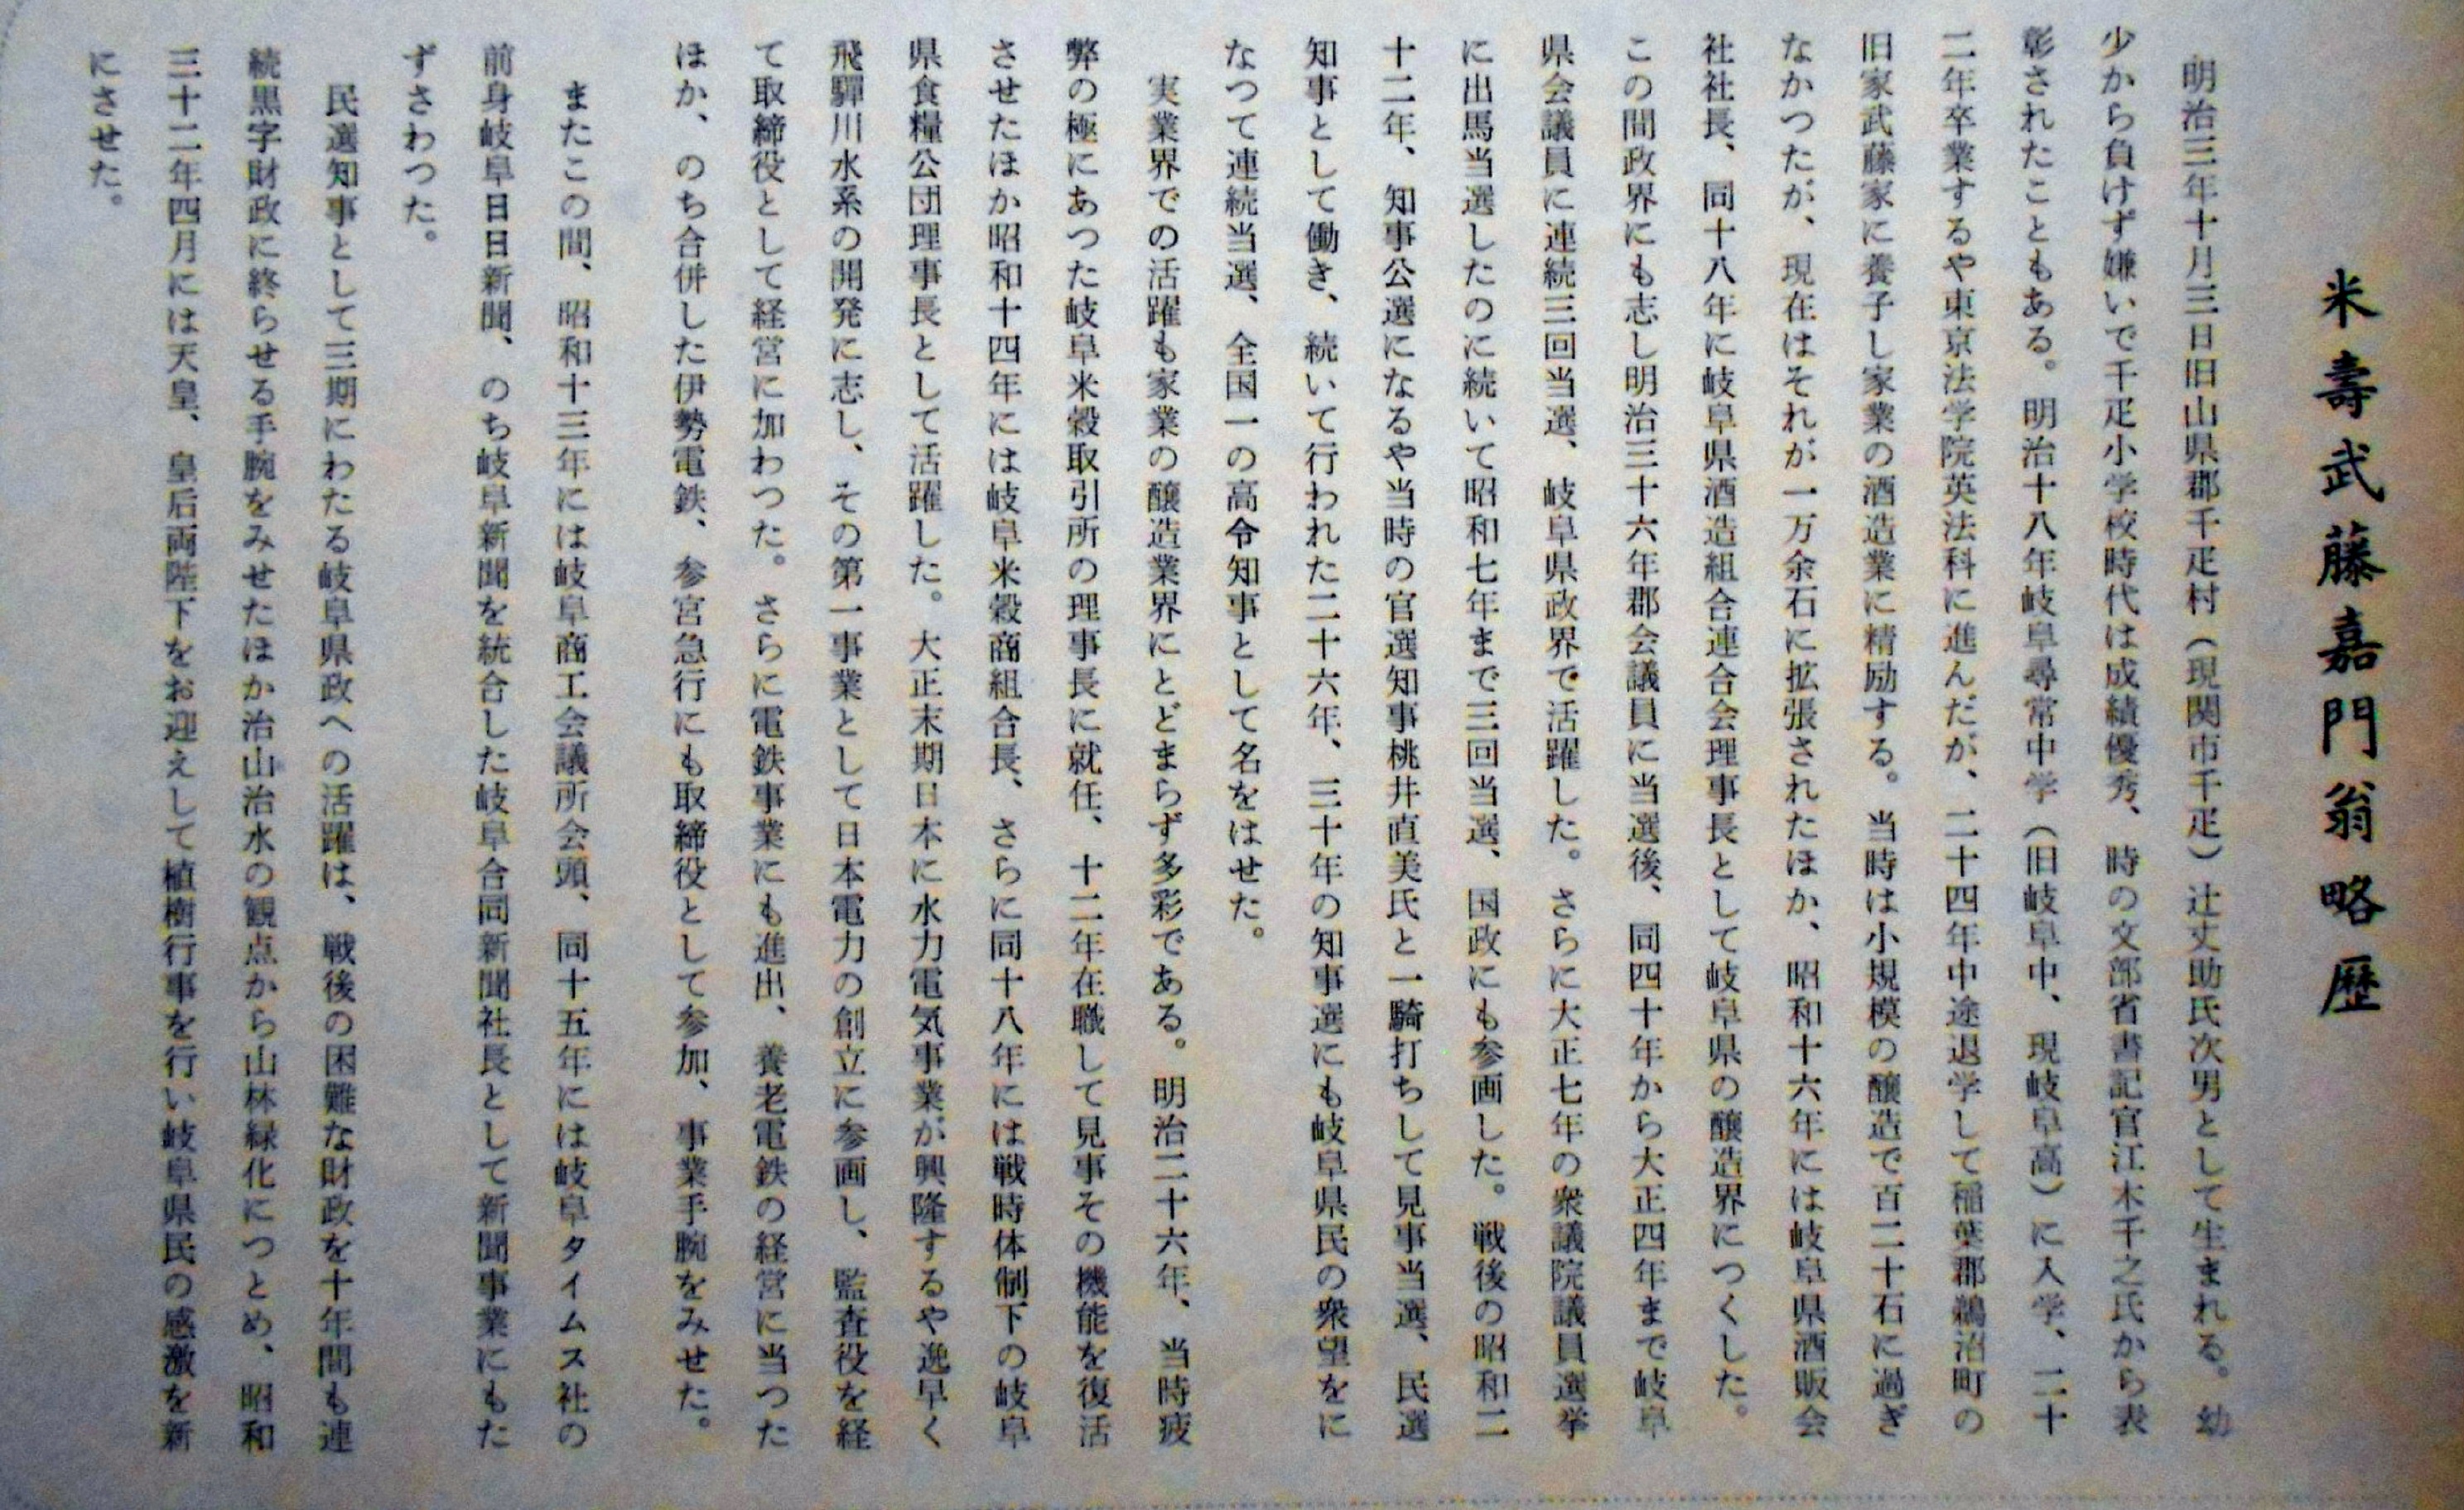 米壽武藤嘉門翁略歴
明治三年十月三日旧山県郡千疋村（現関市千疋）辻丈助氏次男として生まれる。幼
少から負けず嫌いで千疋小学校時代は成績優秀、時の文部省書記官江木千之氏から表
彰されたこともある。明治十八年岐阜尋常中学（旧岐阜中、現岐阜高）に入学、二十
二年卒業するや東京法学院英法科に進んだが、二十四年中途退学して稲葉郡鵜沼町の
旧家武藤家に養子し家業の酒造業に精励する。当時は小規模の醸造で百二十石に過ぎ
なかつたが、現在はそれが一万余石に拡張されたほか、昭和十六年には岐阜県酒販会
社社長、同十八年に岐阜県酒造組合連合会理事長として岐阜県の醸造界につくした。
この間政界にも志し明治三十六年郡会議員に当選後、同四十年から大正四年まで岐阜
県会議員に連続三回当選、岐阜県政界で活躍した。さらに大正七年の衆議院議員選挙
に出馬当選したのに続いて昭和七年まで三回当選、国政にも参画した。戦後の昭和二
十二年、知事公選になるや当時の官選知事桃井直美氏と一騎打ちして見事当選、民選
知事として働き、続いて行われた二十六年、三十年の知事選にも岐阜県民の衆望をに
なつて連続当選、全国一の高令知事として名をはせた。
実業界での活躍も家業の醸造業界にとどまらず多彩である。明治二十六年、当時疲
弊の極にあつた岐阜米穀取引所の理事長に就任、十二年在職して見事その機能を復活
させたほか昭和十四年には岐阜米穀商組合長、さらに同十八年には戦時体制下の岐阜
県食糧公団理事長として活躍した。大正末期日本に水力電気事業が興隆するや逸早く
飛驒川水系の開発に志し、その第一事業として日本電力の創立に参画し、監査役を経
て取締役として経営に加わつた。さらに電鉄事業にも進出、養老電鉄の経営に当つた
ほか、のち合併した伊勢電鉄、参宮急行にも取締役として参加、事業手腕をみせた。
またこの間、昭和十三年には岐阜商工会議所会頭、同十五年には岐阜タイムス社の
前身岐阜日日新聞、のち岐阜新聞を統合した岐阜合同新聞社長として新聞事業にもた
ずさわつた。
民選知事として三期にわたる岐阜県政への活躍は、戦後の困難な財政を十年間も連
続黒字財政に終らせる手腕をみせたほか治山治水の観点から山林緑化につとめ、昭和
三十二年四月には天皇、皇后両陛下をお迎えして植樹行事を行い岐阜県民の感激を新
にさせた。